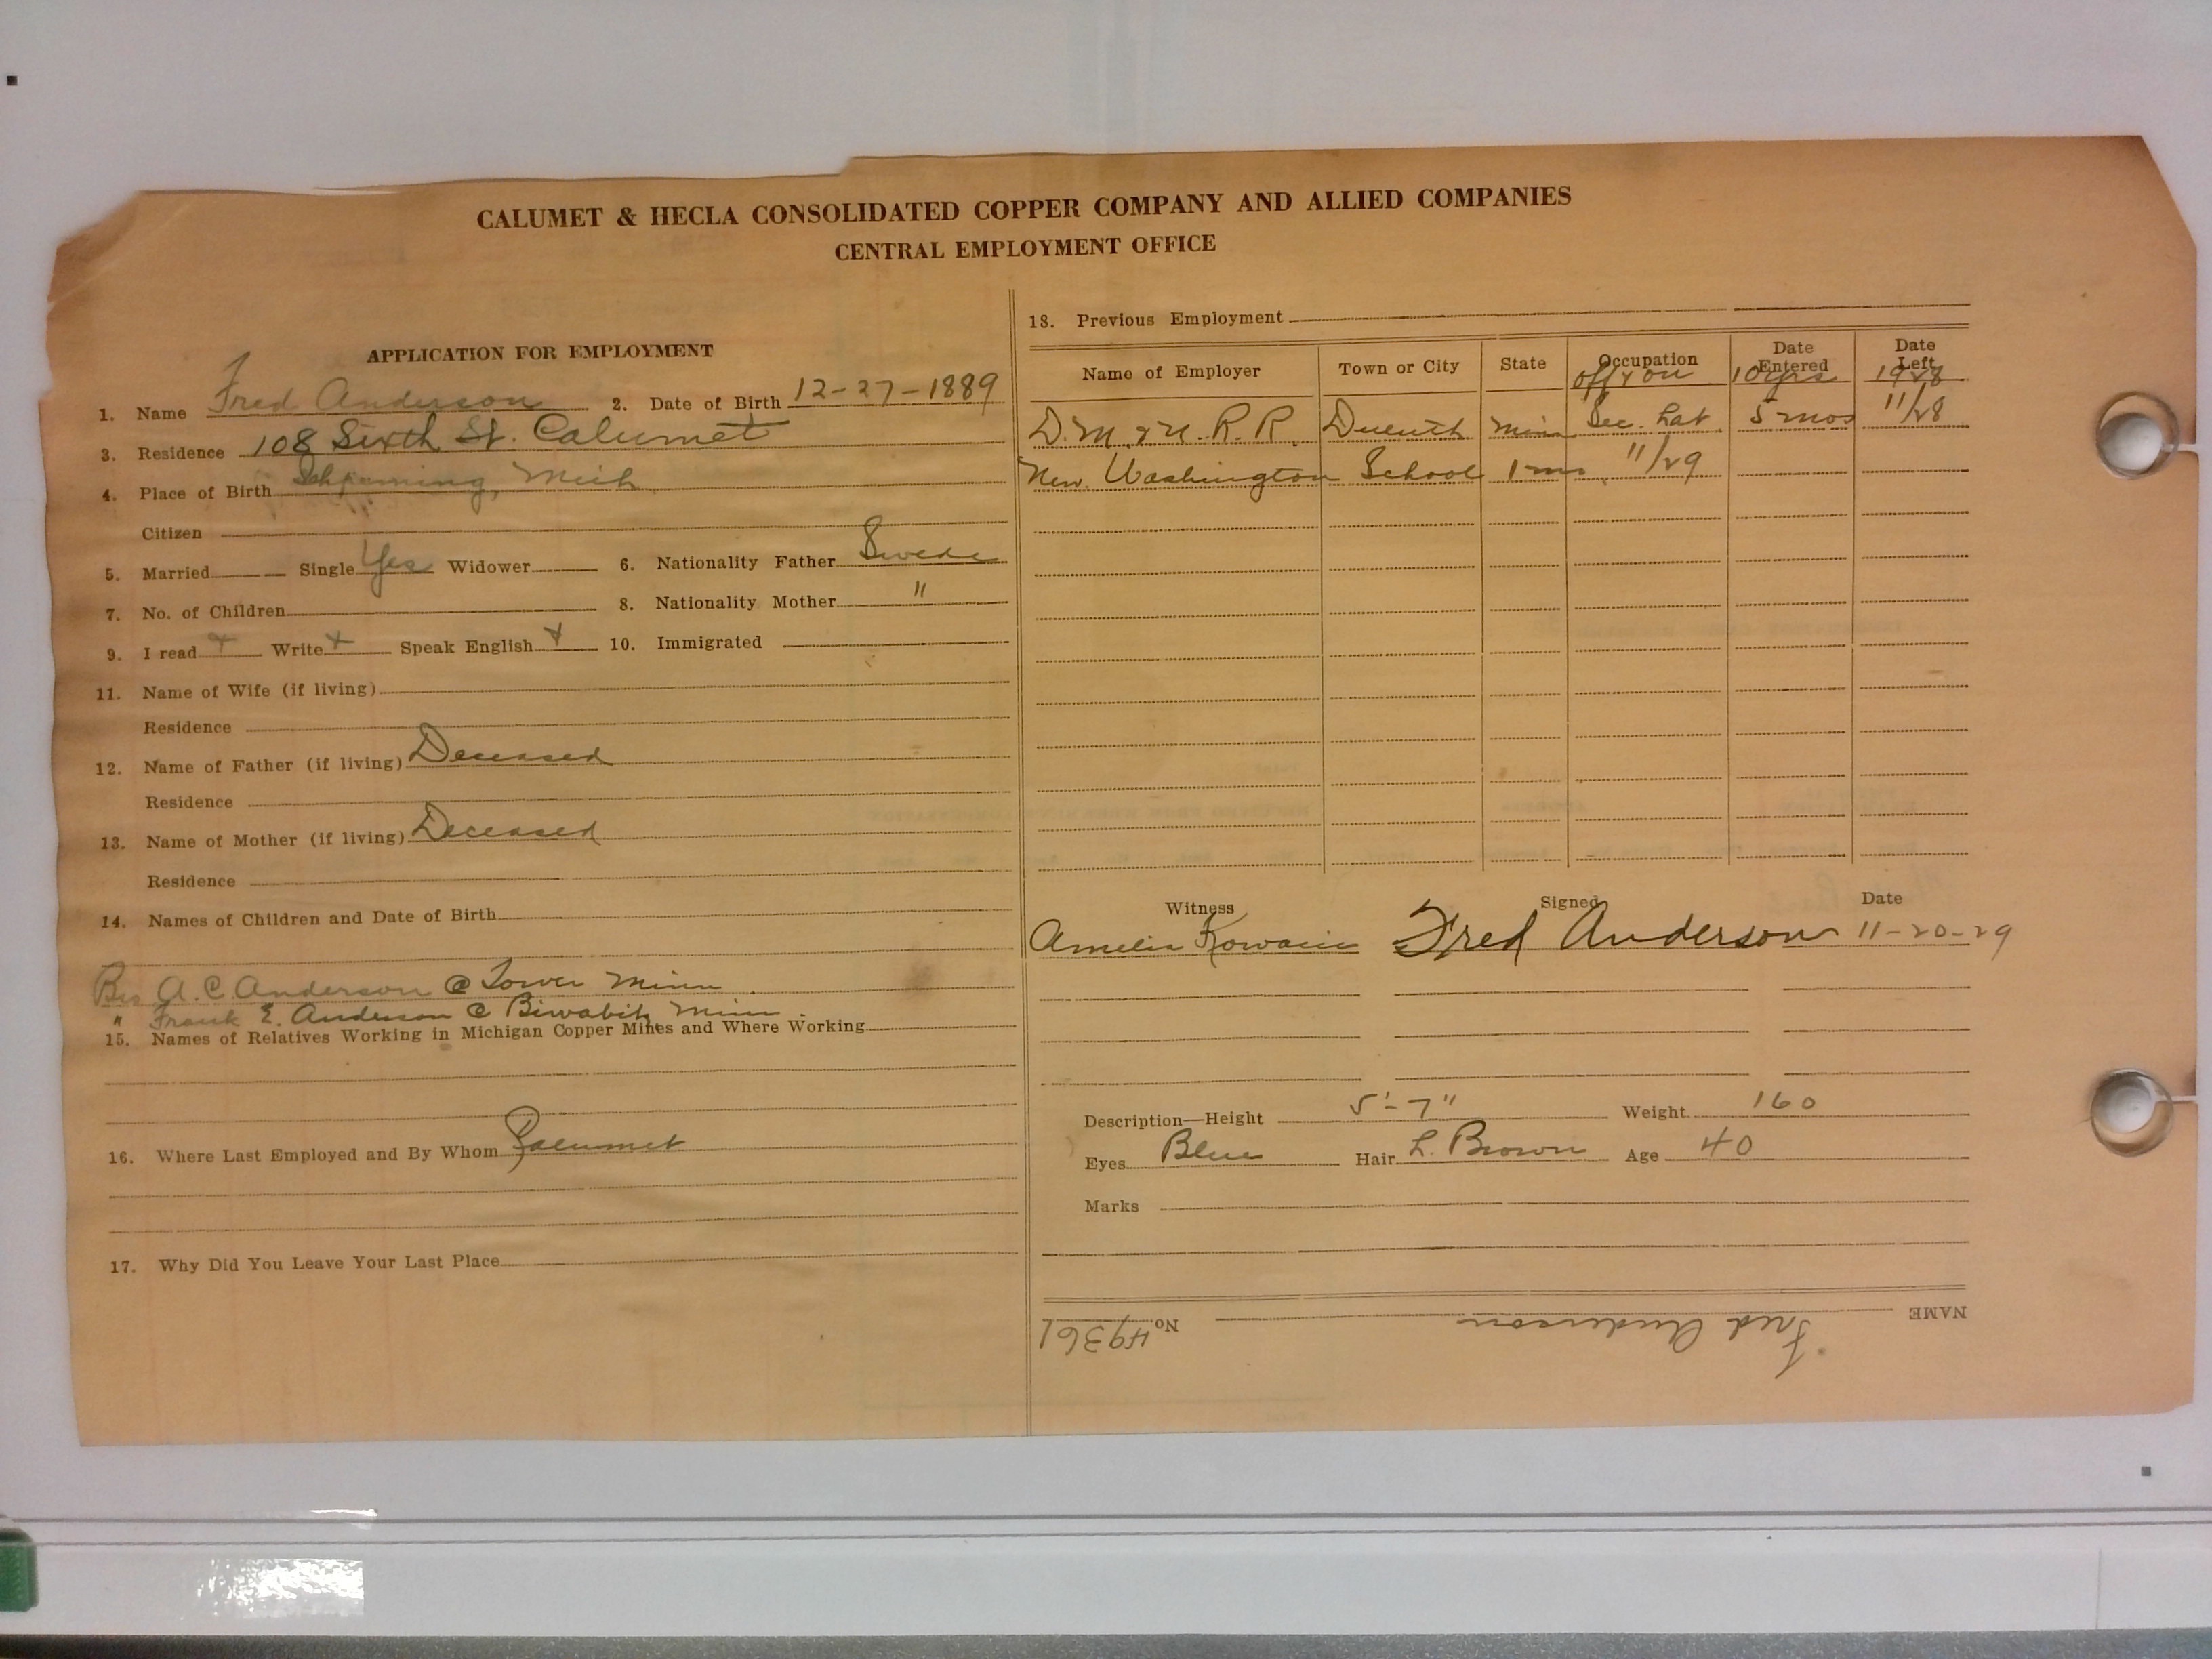 CALUMET & HECLA CONSOLIDATED COPPER COMPANY AND ALLIED COMPANIES
CENTRAL EMPLOYMENT OFFICE
APPLICATION FOR EMPLOYMENT
1. Name Fred Anderson 2. Date of Birth 12-27-1889
3. Residence 108 Sixth St. Calumet
4. Place of Birth Ishpeming, Mich
Citizen
5. Married Single Yes Widower 6. Nationality Father Swede
7. No. of Children 8. Nationality Mother "
9. I read x Write x Speak English x 10. Immigrated
11. Name of Wife (if living)
Residence
12. Name of Father (if living) Deceased
Residence
13. Name of Mother (if living) Deceased
Residence
14. Names of Children and Date of Birth
Bro A. C. Anderson @ Tower Minn
" Frank E. Anderson @ Biwabik Minn.
15. Names of Relatives Working in Michigan Copper Mines and Where Working
16. Where Last Employed and By Whom Calumet
17. Why Did You Leave Your Last Place
18. Previous Employment
Name of Employer Town or City State Occupation Date Entered Date Left
off & on 10 yrs 1928
D. M. & N. R. R. Duluth Minn Sec. Lab. 5 mos 11/28
New Washington School 1 mo 11/29
Witness Signed Date
Amelia Fred Anderson 11-20-29
Description—Height 5'-7" Weight 160
Eyes Blue Hair L. Brown Age 40
Marks
NAME Fred Anderson No. 49361